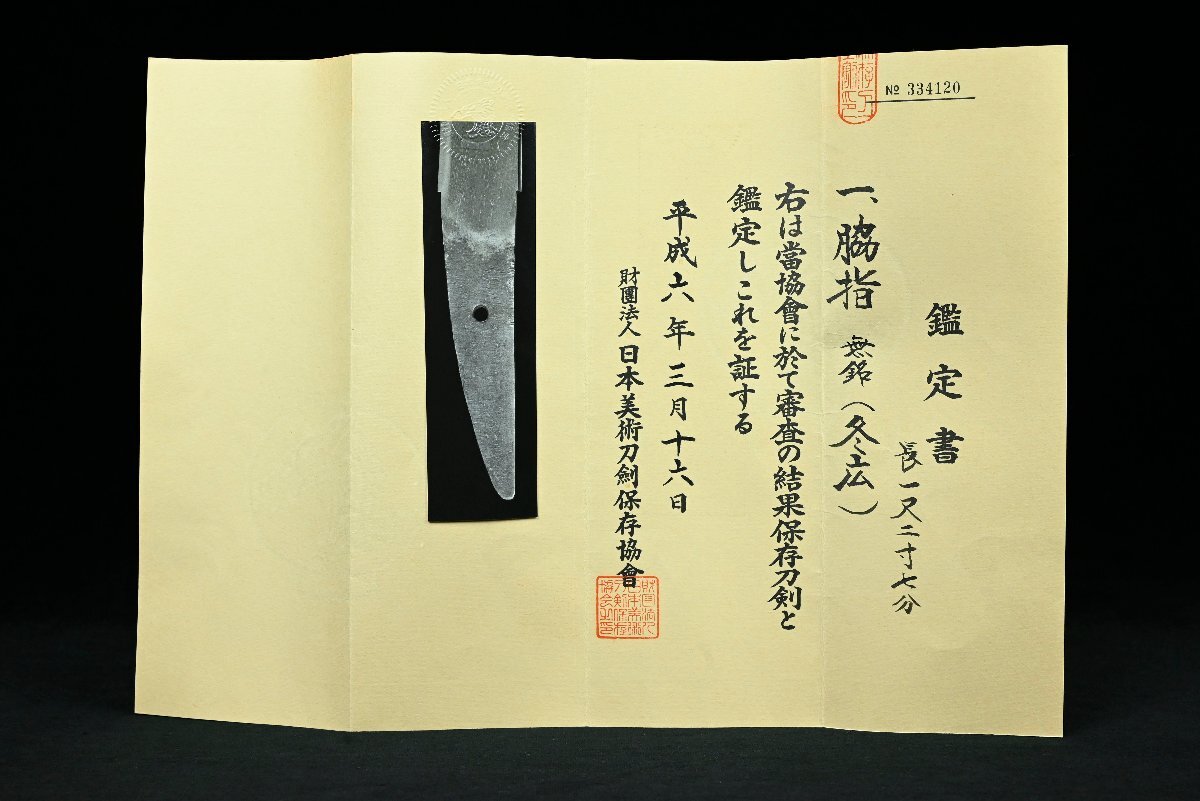 № 334120
鑑定書
長一尺二寸七分
一、脇指 無銘（冬広）
右は當協會に於て審査の結果保存刀剣と
鑑定しこれを証する
平成六年三月十六日
財團法人日本美術刀劍保存協會